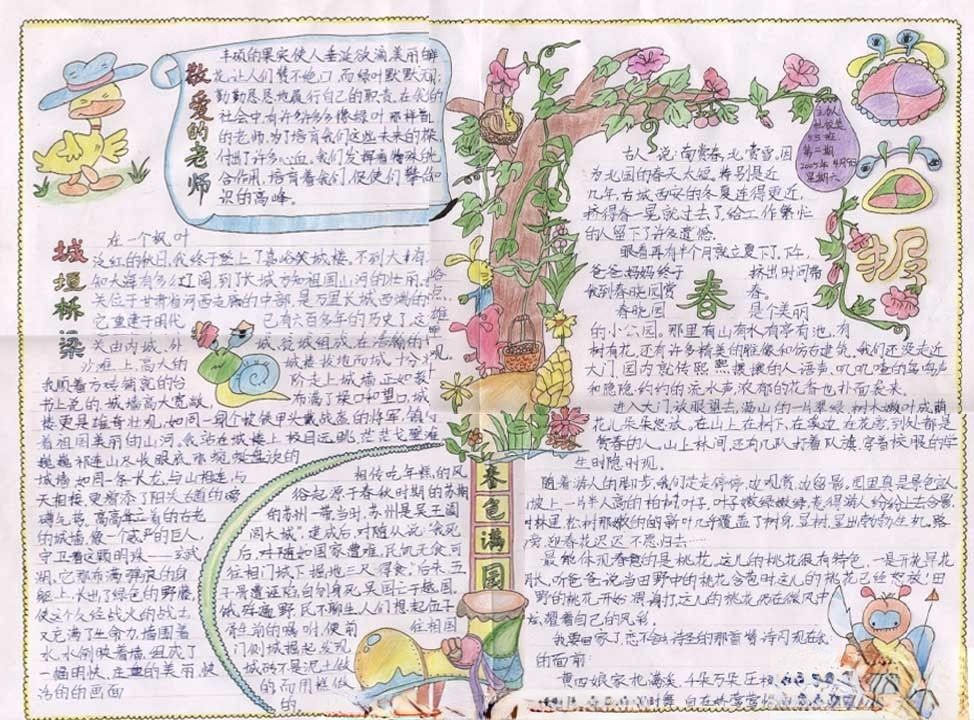 敬爱的老师
丰硕的果实使人垂涎欲滴,美丽的鲜
花让人们赞不绝口,而绿叶默默无
勤勤恳恳地履行自己的职责。在我的
社会中,有许许多多像绿叶那样
的老师,为了培育我们这些未来的
付出了许多心血。我们发挥着
合作用,培育着我们,促使们攀
识的高峰。
城堰桥梁
在一个枫叶
红的秋日,我终于登上了嘉峪关城楼,不到
知大海有多么辽阔,到了长城方知祖国山河的壮丽。
关位于甘肃省河西走廊的中部,是万里长城西端的
它重建于明代 已有六百多年的历史了。这
关由内城、外 城、瓮城组成,在浩瀚的
沙滩上,高大的 城楼拔地而城,十分
我顺着方砖铺就的台 阶走上城墙,正如
书上说的,城墙高大宽敞, 布满了垛口和望口,城
楼更是雄奇壮观,如同一员个披铁甲头戴战盔的将军,镇
着祖国美丽的山河。我站在城楼上极目远眺,茫茫戈壁
巍巍祁连山尽收眼底,
城墙如同一条长龙,与山相连,与
天相接,更增添了阳关古道的磅
礴气势。高高耸立着的古老
的城墙,像一个威严的巨人,
守卫着这颗明珠——玄武
湖。它那布满弹痕的身
躯上,长出了绿色的野藤,
使这个久经战火的战士
又充满了生命力,墙围着
水,水倒映着墙,组成了
一幅明快、庄重的美丽、
洁的的画面
相传吃年糕的风
俗起源于春秋时期的苏
的苏州一带,当时,苏州是吴王阖
闾大城”。建成后,对随从说:“我死
后,对随如国家遭难,民饥无食,可
往相门城下掘地三尺得食。”后来,五
子胥遭诬陷自刎身死,吴国亡于越国,
饿殍遍野,民不聊生,人们想起伍子
胥生前的嘱咐,便前 往相国
门侧城掘起,发现
城砖不是泥土做
的而用糕做
的。
主办人
55班
第二期
2005年4月9日
星期六
春
古人说:“南赏春,北赏雪。因
为北国的春天太短,特别是近
几年,古城西安的冬夏连得更近,
桥得春一晃就过去了,给工作繁忙
的人留下了许多遗憾。
眼看再有半个月就立夏了,下午,
爸爸妈妈终于 挤出时间带
我到春晓园赏 春。
春晓园 是个美丽
的小公园。那里有山有水有亭有池,有
树有花,还有许多精美的雕像和仿古建筑,我们还没走近
大门,园内就传熙熙攘攘的人语声,叽叽喳的鸟鸣声
和隐隐约约的流水声,浓郁的花香也扑面袭来。
进入大门,放眼望去,满山的一片翠绿,树木嫩叶成荫,
花儿朵朵怒放。在山上,在树下,在溪边,在花旁,到处都是
赏春的人。山上林间,还有几队打着队旗,穿着校服的学
生时隐时现。
随着游人的脚步,我们走走停停,边观赏,边留影。园里真是景色
坡上,一片半人高的柏树叶子,叶子嫩绿嫩绿,惹得游人纷纷上去合影,
林里,松树那嫩的的新叶几乎覆盖了树身,显树,呈出勃勃生机,路
旁,迎春花迟迟不愿归去……
最能体现春意的是桃花。这儿的桃花很有特色,一是开花早花
长,听爸爸说,当田野中的桃花含苞时,这儿的桃花已经怒放!田
野的桃花开始凋谢了,这儿的桃花仍在微风中
炫耀着自己的风彩。
我要回家了,恋不舍,诗圣的那首诗闪现在我
的面前:
黄四娘家花满溪,千朵万朵压
自在娇莺
春色满园